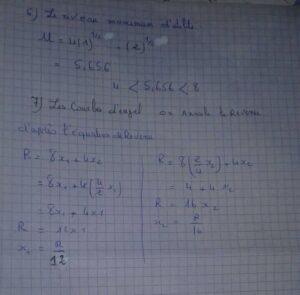 6) Le niveau maximum d'utilité
U = 4(1)^1/2 · (2)^1/2
= 5,656
4 < 5,656 < 8
7) Les Courbes d'engel on Annule le Revenu
d'après l'équation de Revenu
R = 8x1 + 4x2
= 8x1 + 4(4/2 x1)
= 8x1 + 4x1
R = 12x1
x1 = R/12
R = 8(2/4 x2) + 4x2
= 4 + 4x2
R = 16x2
x2 = R/16